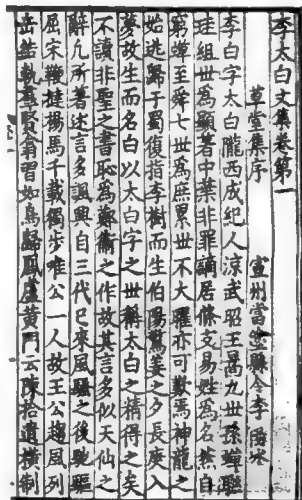 李太白文集卷第一
草堂集序 宣州當塗縣令李陽冰
李白字太白隴西成紀人涼武昭王暠九世孫蟬聯
珪組世為顯著中葉非罪謫居條支易姓為名然自
窮蟬至舜七世為庶累世不大曜亦可歎焉神龍之
始逃歸于蜀復指李樹而生伯陽驚姜之夕長庚入
夢故生而名白以太白字之世稱太白之精得之矣
不讀非聖之書恥為鄭衛之作故其言多似天仙之
辭凡所著述言多諷興自三代已來風騷之後馳驅
屈宋鞭撻揚馬千載獨步唯公一人故王公趨風列
岳結軌羣賢翕習如鳥歸鳳盧黃門云陳拾遺橫制